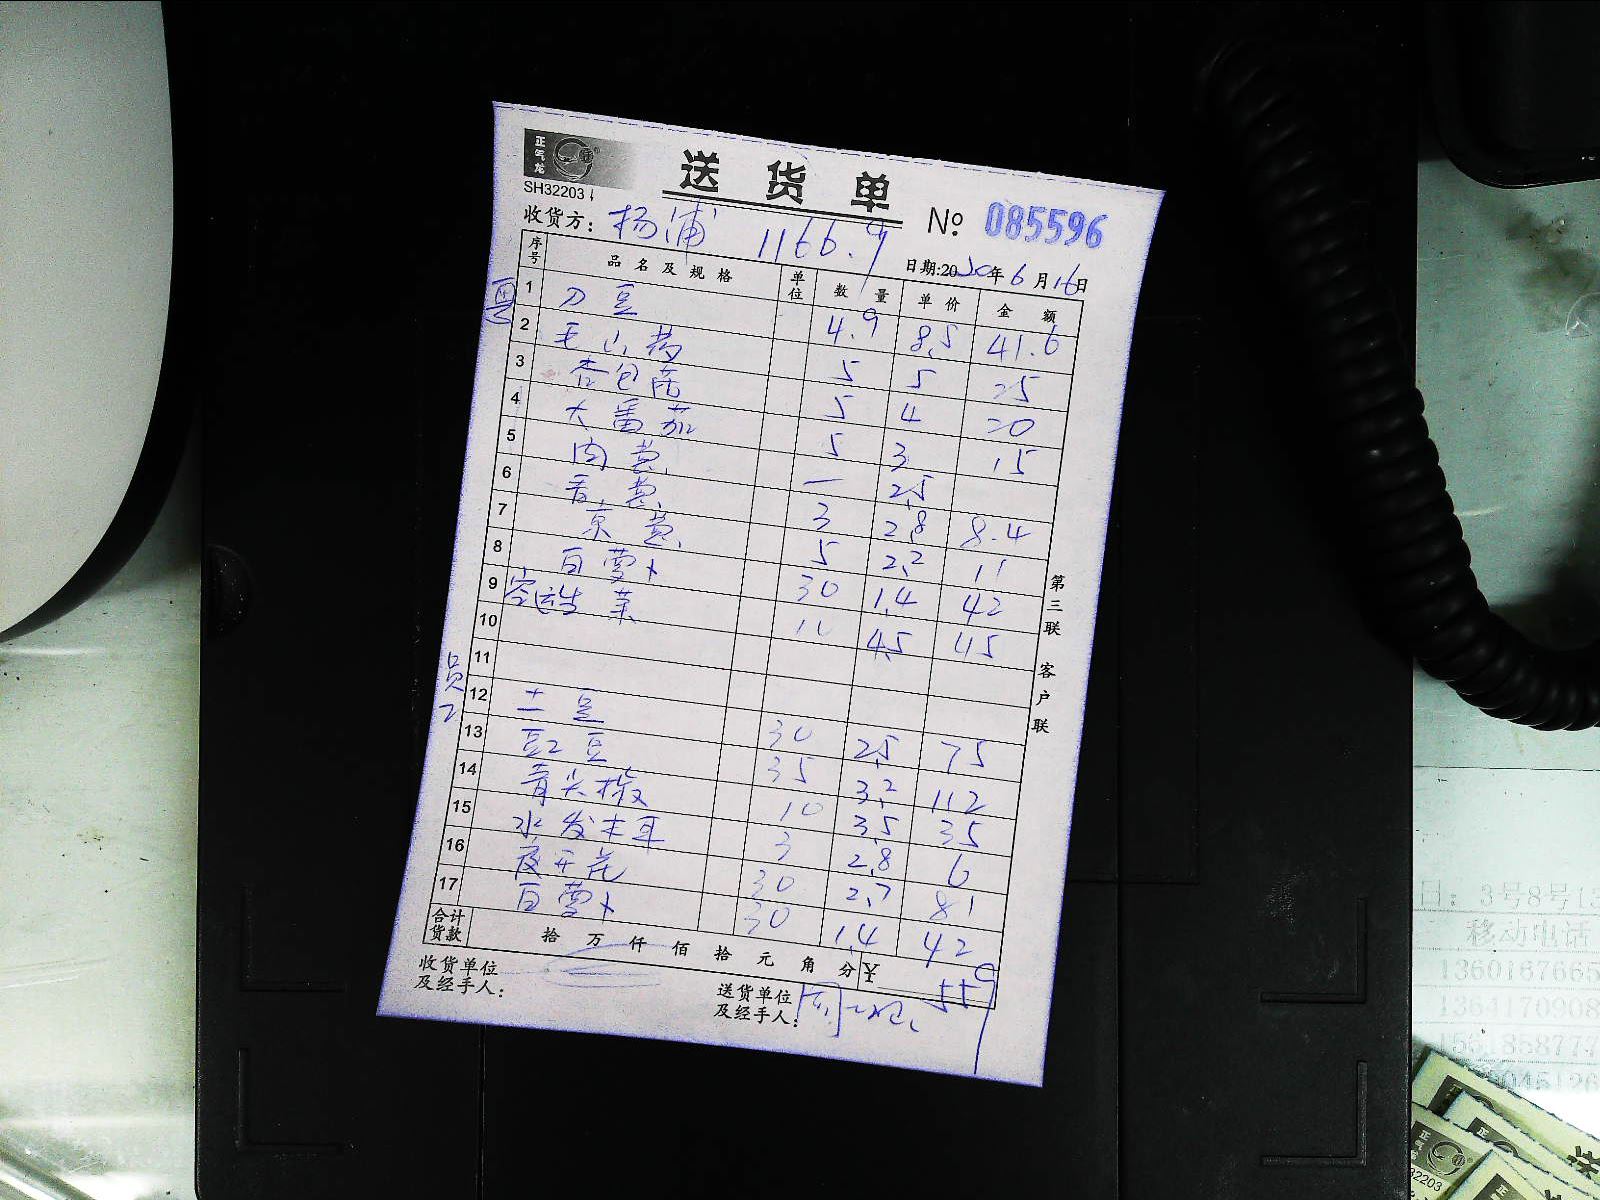 正气龙
SH32203
送货单
收货方: 杨浦 1166.9
№ 085596
日期:2020年6月16日
序号 品名及规格 单位 数量 单价 金额
1 刀豆 4.9 8.5 41.6
2 毛山药 5 5 25
3 杏包菇 5 4 20
4 大番茄 5 3 15
5 肉 一 2.5
6 3 2.8 8.4
7 京 5 2.2 11
8 白萝卜 30 1.4 42
9 菜 10 4.5 45
10
11
12 土豆 30 2.5 75
13 豇豆 35 3.2 112
14 青尖椒 10 3.5 35
15 水发木耳 3 2.8 6
16 夜开花 30 2.7 81
17 白萝卜 30 1.4 42
合计货款 拾 万 仟 佰 拾 元 角 分 ¥ 559
收货单位及经手人:
送货单位及经手人:
第三联 客户联
员工
日: 3号8号
移动电话
1360167665
1364170908
32203